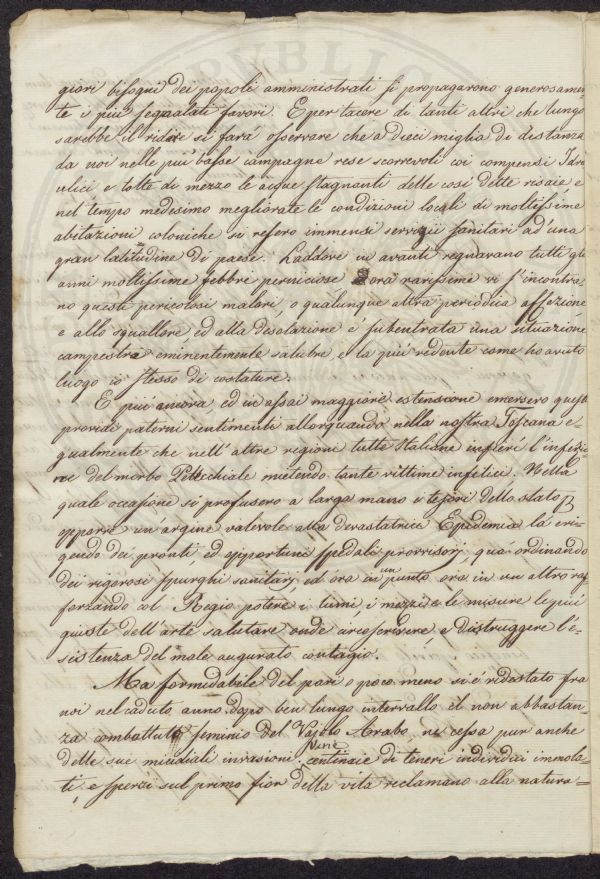 giori bisogni dei popoli amministrati si propagarono generosamen
te i più segnalati favori. E per tacere di tanti altri che lungo
sarebbe il ridire si farà osservare che a dieci miglia di destanza
da noi nelle più basse campagne rese scorrevoli coi compensi Idra
ulici e tolte di mezzo le acque stagnanti delle così dette risaie, e
nel tempo medesimo megliorate le condizioni locali di moltissime
abitazioni coloniche si resero immensi servigii sanitari ad una
gran latitudine di paese. Laddove in avanti regnavano tutti gli
anni moltissime febbre perniciose ora rarissime vi s'incontra
no questi pericolosi malori, o qualunque altra periodica affezione
e allo squallore ed alla desolazione è subentrata una situazione
campestre eminentemente salubre, e la più ridente come ho avuto
luogo io stesso di costatare.
E più ancora ed in assai maggiore estensione emersero questi
providi paterni sentimenti allorquando nella nostra Toscana e-
gualmente che nell'altre regioni tutte Italiane inferì l'infezio
ne del morbo Petecchiale mietendo tante vittime infelici. Nella
quale occasione si profusero a larga mano i tesori dello stato p
opporre un'argine valevole alla devastatrice Epidemia là eri-
gendo dei pronti, ed opportuni spedali provvisorj, quà ordinando
dei rigorosi spurghi sanitarj, ed ora in un punto ora in un altro raf
forzando col Regio potere i lumi, i mezzi e le misure le più
giuste dell'arte salutare onde circoscrivere e distruggere l'e-
sistenza del male augurato contagio.
Ma formidabile del pari o poco meno si è ridastato fra
noi nel caduto anno dopo ben lungo intervallo il non abbastan-
za combattuto seminio del Vajolo Arabo, nè cessa pur anche
delle sue micidiali invasioni. Varie centinaie di teneri individui immola-
ti, e spersi sul primo fior della vita reclamano alla natura-